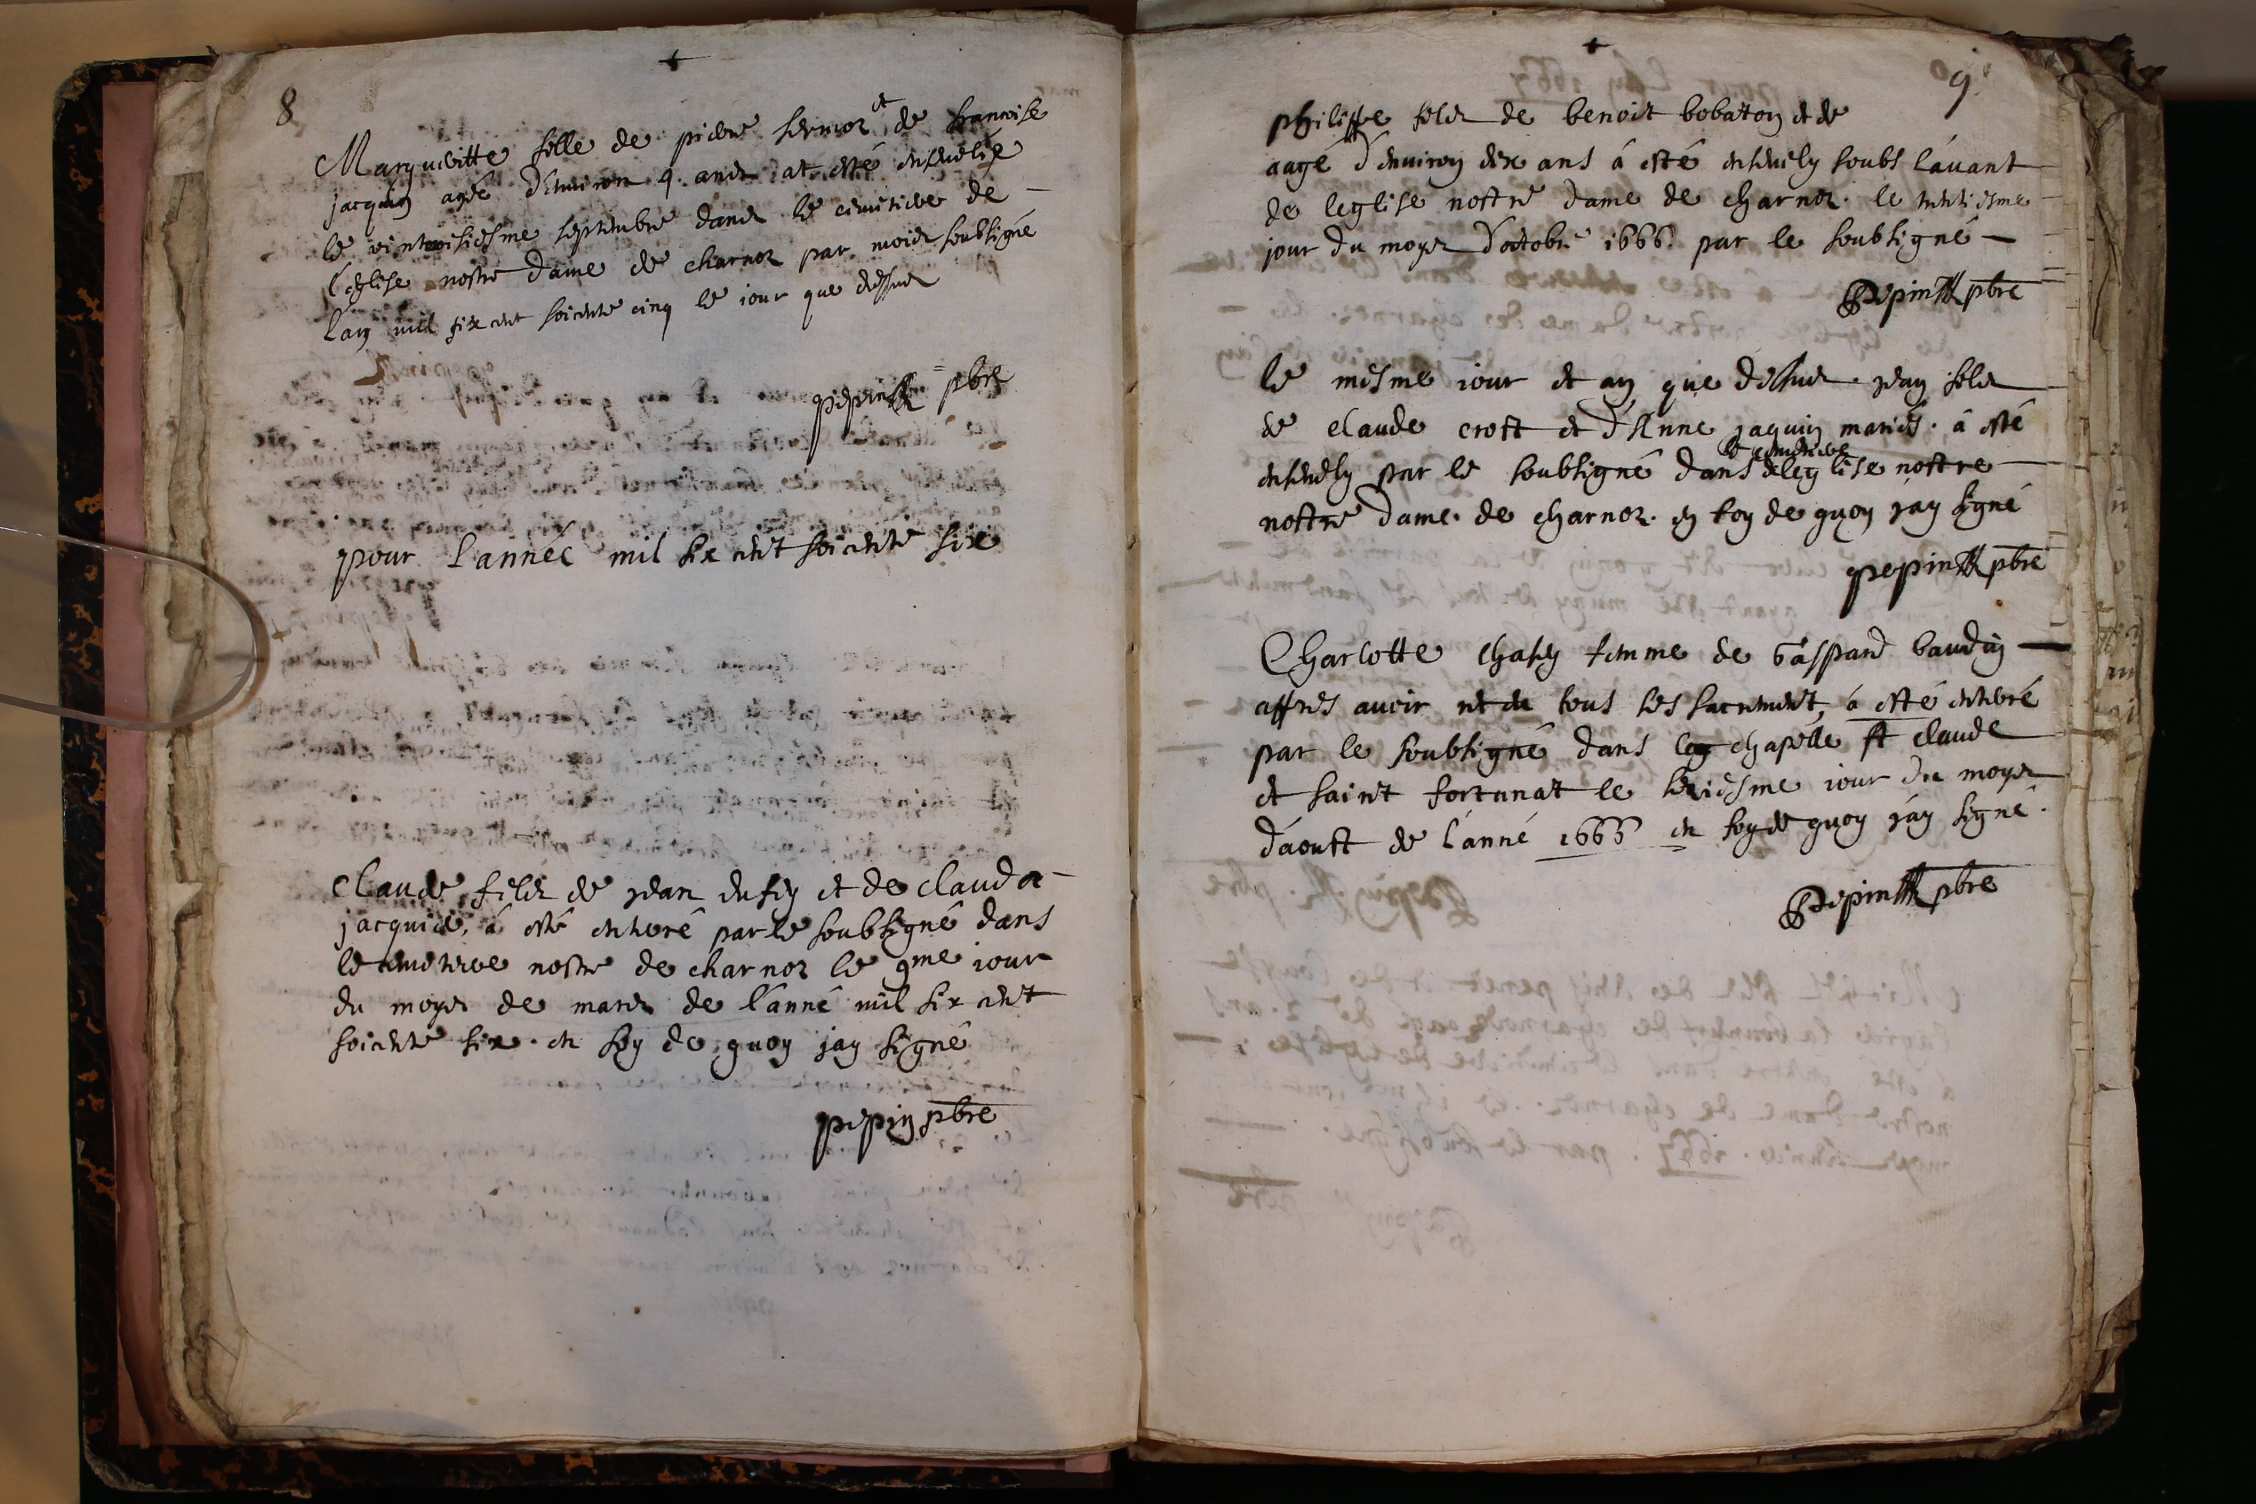 8
Margueritte fille de pierre sermoz et de francoise
jacquin agée d'environ 4. ans at esté ensevelie
le vintroisiesme septembre dans le cimitiere de
l'eglise nostre dame de charnoz par moier soubsigné
l'an mil six cent soicente cinq le jour que dessus
pepin pbre
pour l'année mil six cent soicente six
Claude fils de jean dufey et de clauda
jacquier, à esté enterré par le soubsigné dans
le cimetiere nostre de charnoz le 9me iour
du moys de mars de l'anné mil six cent
soicente six. en foy de quoy jay signé
pepin pbre
9
philippe fils de benoit bobaton et de
aagé d'environ dix ans à esté ensevely soubs l'avant
de leglise nostre dame de charnoz. le
jour du moys d'octobre 1666. par le soubsigné
Pepin pbre
le mesme iour et an que dessus. jean fils
de claude crost et d'Anne jaquin mariés. à esté
ensevely par le soubsigné dans le cimetiere de leglise nostre
nostre dame. de charnoz. en foy de quoy jay signé
pepin pbre
Charlotte chasey femme de Gaspard baudin
affres avoir receu tous les sacrement, à esté enterré
par le soubsigné dans chapelle st claude
et saint fortunat le seziesme iour du moys
d'aoust de l'anné 1666 en foy de quoy jay signé.
Pepin pbre